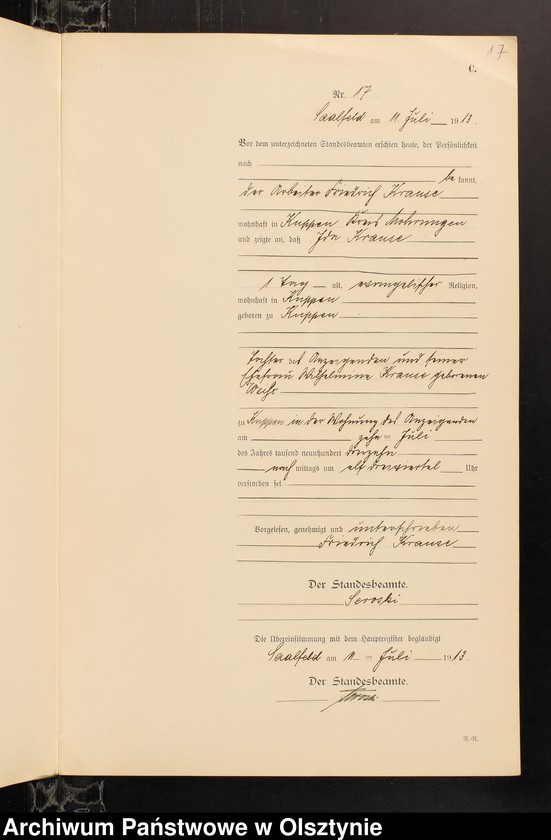 17
C.
Nr. 17
Saalfeld am 11. Juli 1913.
Vor dem unterzeichneten Standesbeamten erschien heute, der Persönlichkeit
nach
be kannt,
der Arbeiter Friedrich Krause
wohnhaft in Kuppen Kreis Mohrungen
und zeigte an, daß Ida Krause
1 Tag alt, evangelischer Religion,
wohnhaft in Kuppen
geboren zu Kuppen
Tochter des Anzeigenden und seiner
Ehefrau Wilhelmine Krause geborenen
zu Kuppen in der Wohnung des Anzeigenden
am zehn ten Juli
des Jahres tausend neunhundert dreizehn
nach mittags um elf dreiviertel Uhr
verstorben sei.
Vorgelesen, genehmigt und unterschrieben
Friedrich Krause
Der Standesbeamte.
Die Übereinstimmung mit dem Hauptregister beglaubigt
Saalfeld am 11. Juli 1913.
Der Standesbeamte.
Archiwum Państwowe w Olsztynie